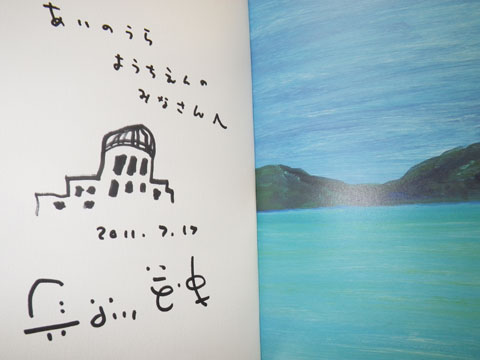 あいのうら
ようちえんの
みなさんへ
2011.7.17